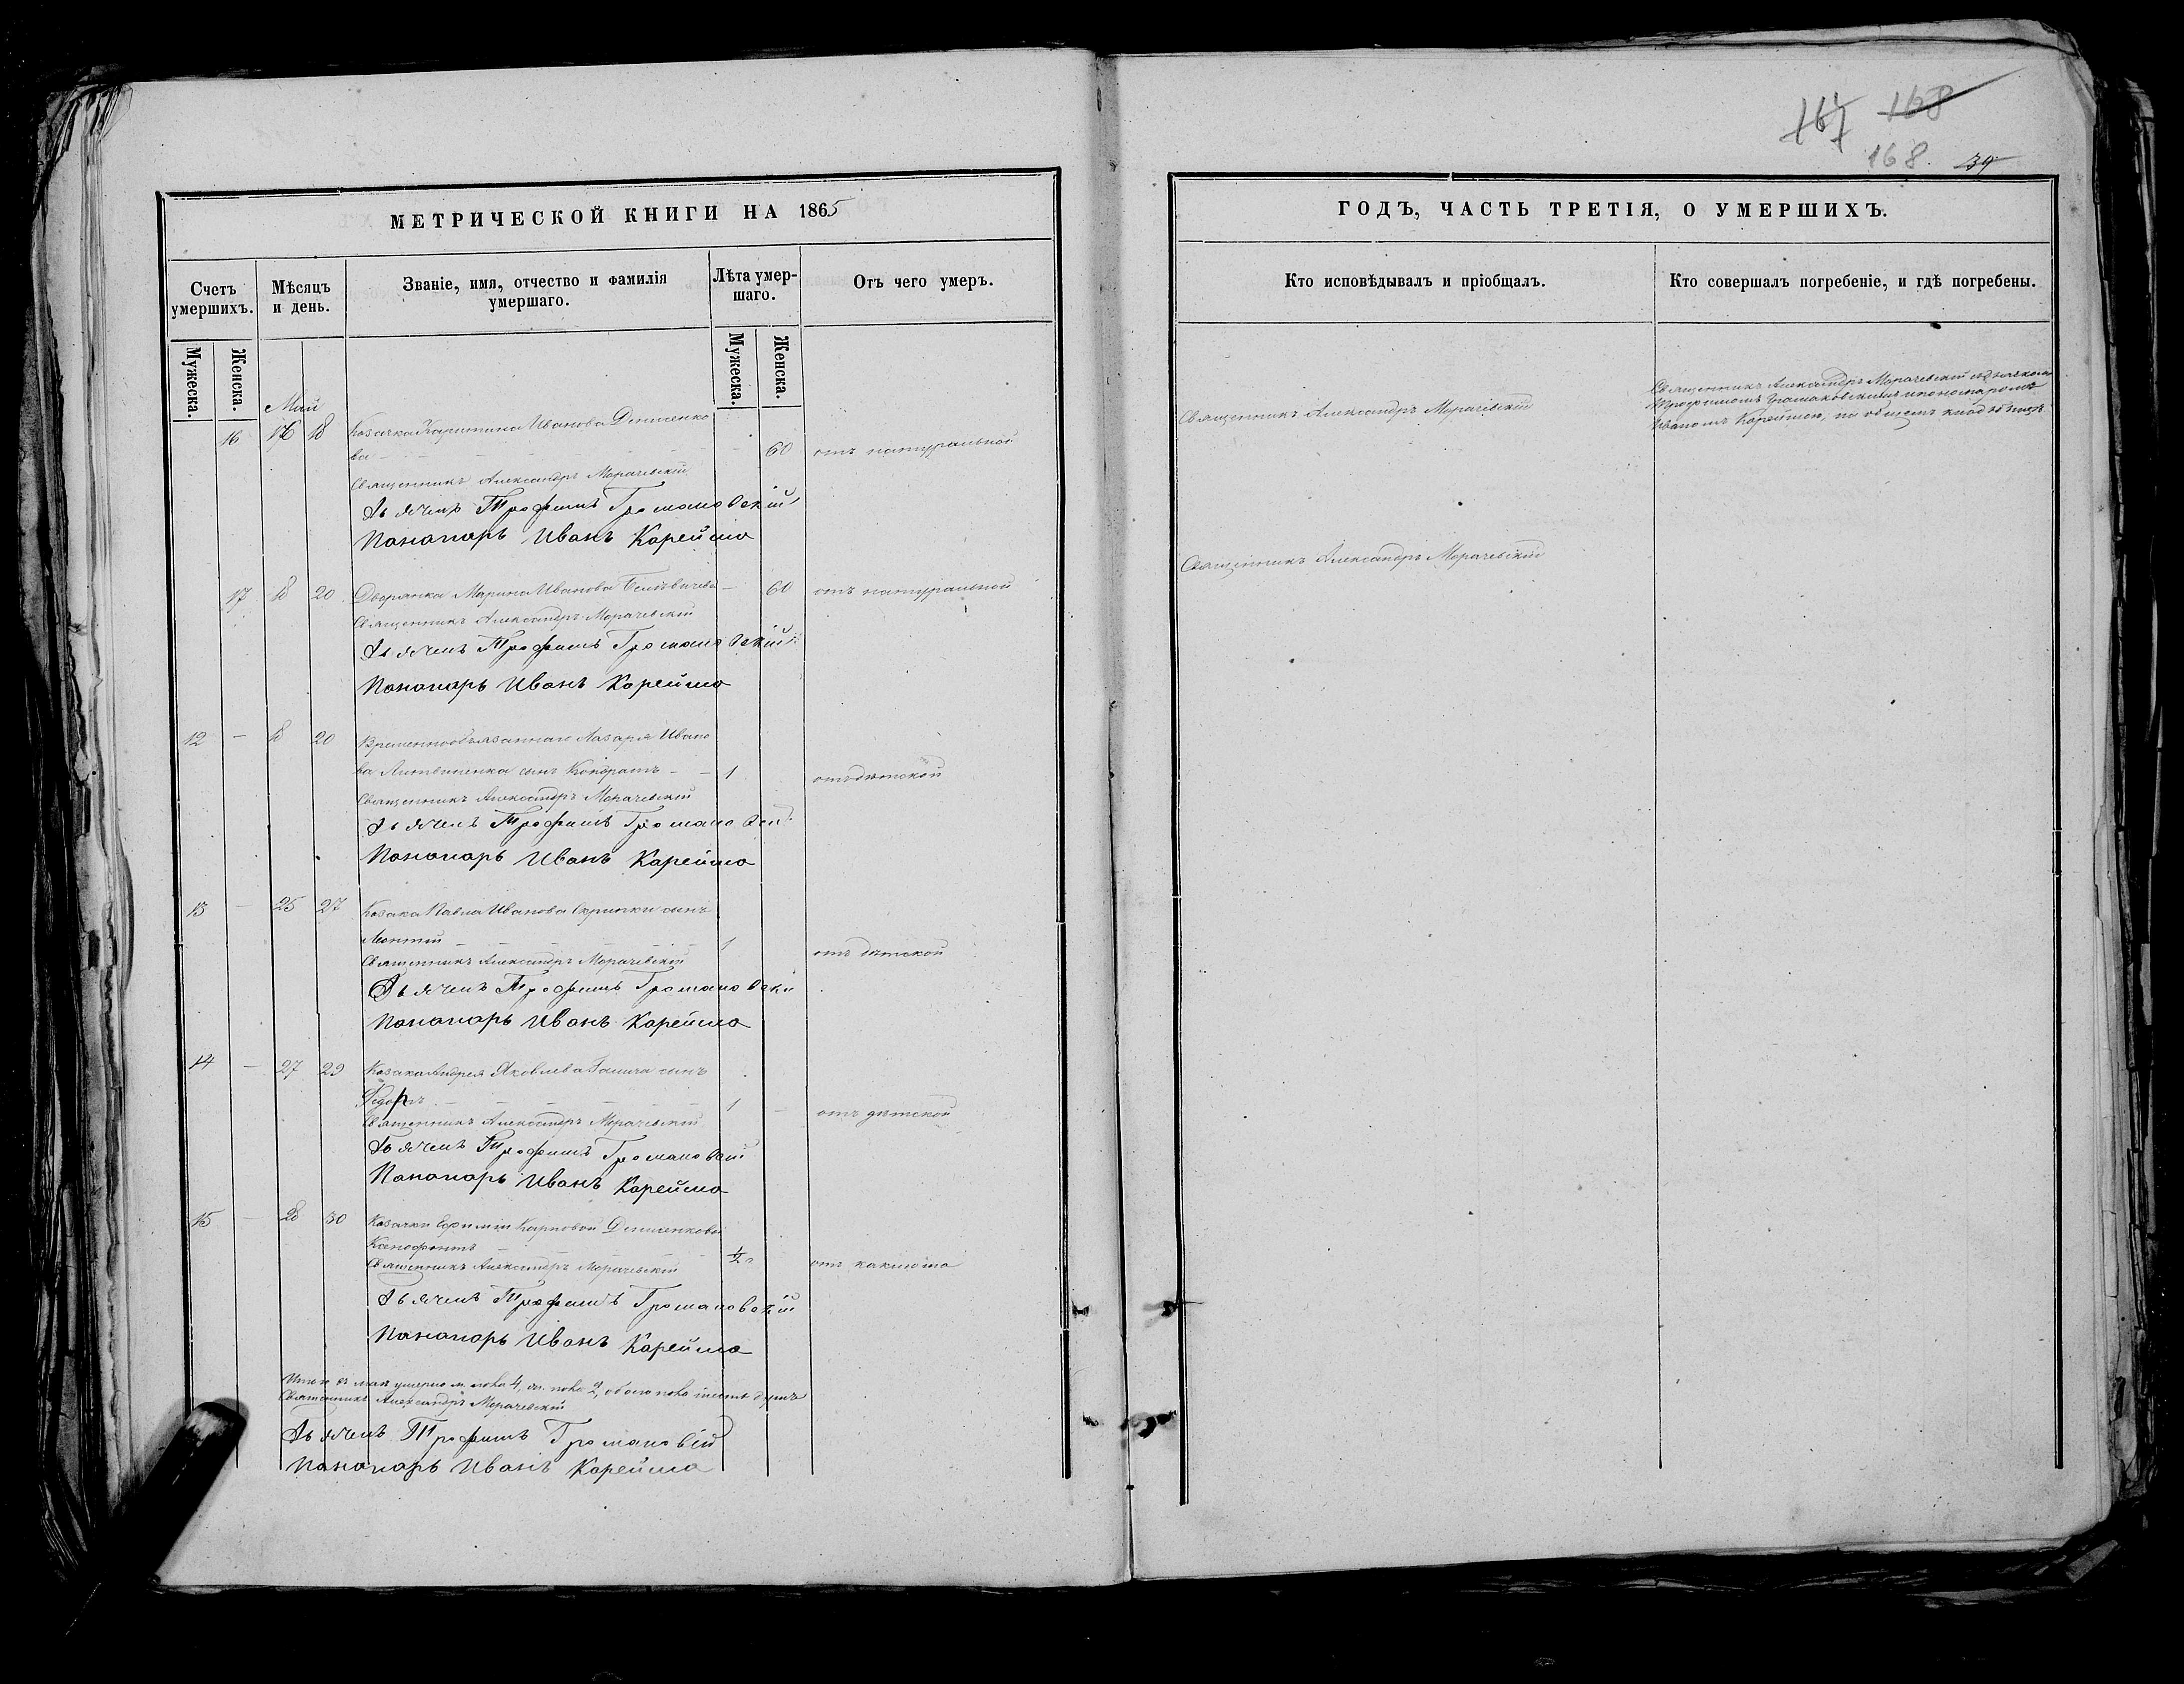 МЕТРИЧЕСКОЙ КНИГИ НА 1865
Счетъ умершихъ.
Мѣсяцъ и день.
Званіе, имя, отчество и фамилія
умершаго.
Лѣта умер-
шаго.
Отъ чего умеръ.
Мужеска.
Женска.
Мужеска.
Женска.
Май
16 16 18 Козачка Иванова Денисенко
ва 60 отъ натуральной
Священникъ Александръ Морачевскій
Дьячекъ Трофимъ Громаковскій
Понамарь Иванъ Карейша
17 18 20 Дворянка Марина Иванова 60 отъ натуральной
Священникъ Александръ Морачевскій
Дьячекъ Трофимъ Громаковскій
Понамарь Иванъ Карейша
12 — 18 20 Временнообязаннаго Лазаря Ивано
ва Литвиненка сынъ Кондратъ 1 отъ дѣтской
Священникъ Александръ Морачевскій
Дьячекъ Трофимъ
Понамарь Иванъ Карейша
13 — 25 27 Козака Павла Иванова Скрипки сынъ
Леонтій 1 отъ дѣтской
Священникъ Александръ Морачевскій
Дьячекъ Трофимъ
Понамарь Иванъ Карейша
14 — 27 29 Козака Андрея Яковлева сынъ
Федоръ 1 — отъ дѣтской
Священникъ Александръ Морачевскій
Дьячекъ Трофимъ
Понамарь Иванъ Карейша
15 — 28 30 Козачки Ефиміи Карповой Денисенковой
Ксенофонтъ 1/2 отъ
Священникъ Александръ Морачевскій
Дьячекъ Трофимъ Громаковскій
Понамарь Иванъ Карейша
Итого въ маѣ умерло м. пола 4, ж. пола 2, обоего пола шесть душъ
Священникъ Александръ Морачевскій
Дьячекъ Трофимъ
Понамарь Иванъ Карейша
167 168
168. 39
ГОДЪ, ЧАСТЬ ТРЕТІЯ, О УМЕРШИХЪ.
Кто исповѣдывалъ и пріобщалъ.
Кто совершалъ погребеніе, и гдѣ погребены.
Священникъ Александръ Морачевскій
Священникъ Александръ Морачевскій съ дьячкомъ
Трофимомъ Громаковскимъ и пономаремъ
Иваномъ Карейшою, на общемъ кладбищѣ
Священникъ Александръ Морачевскій